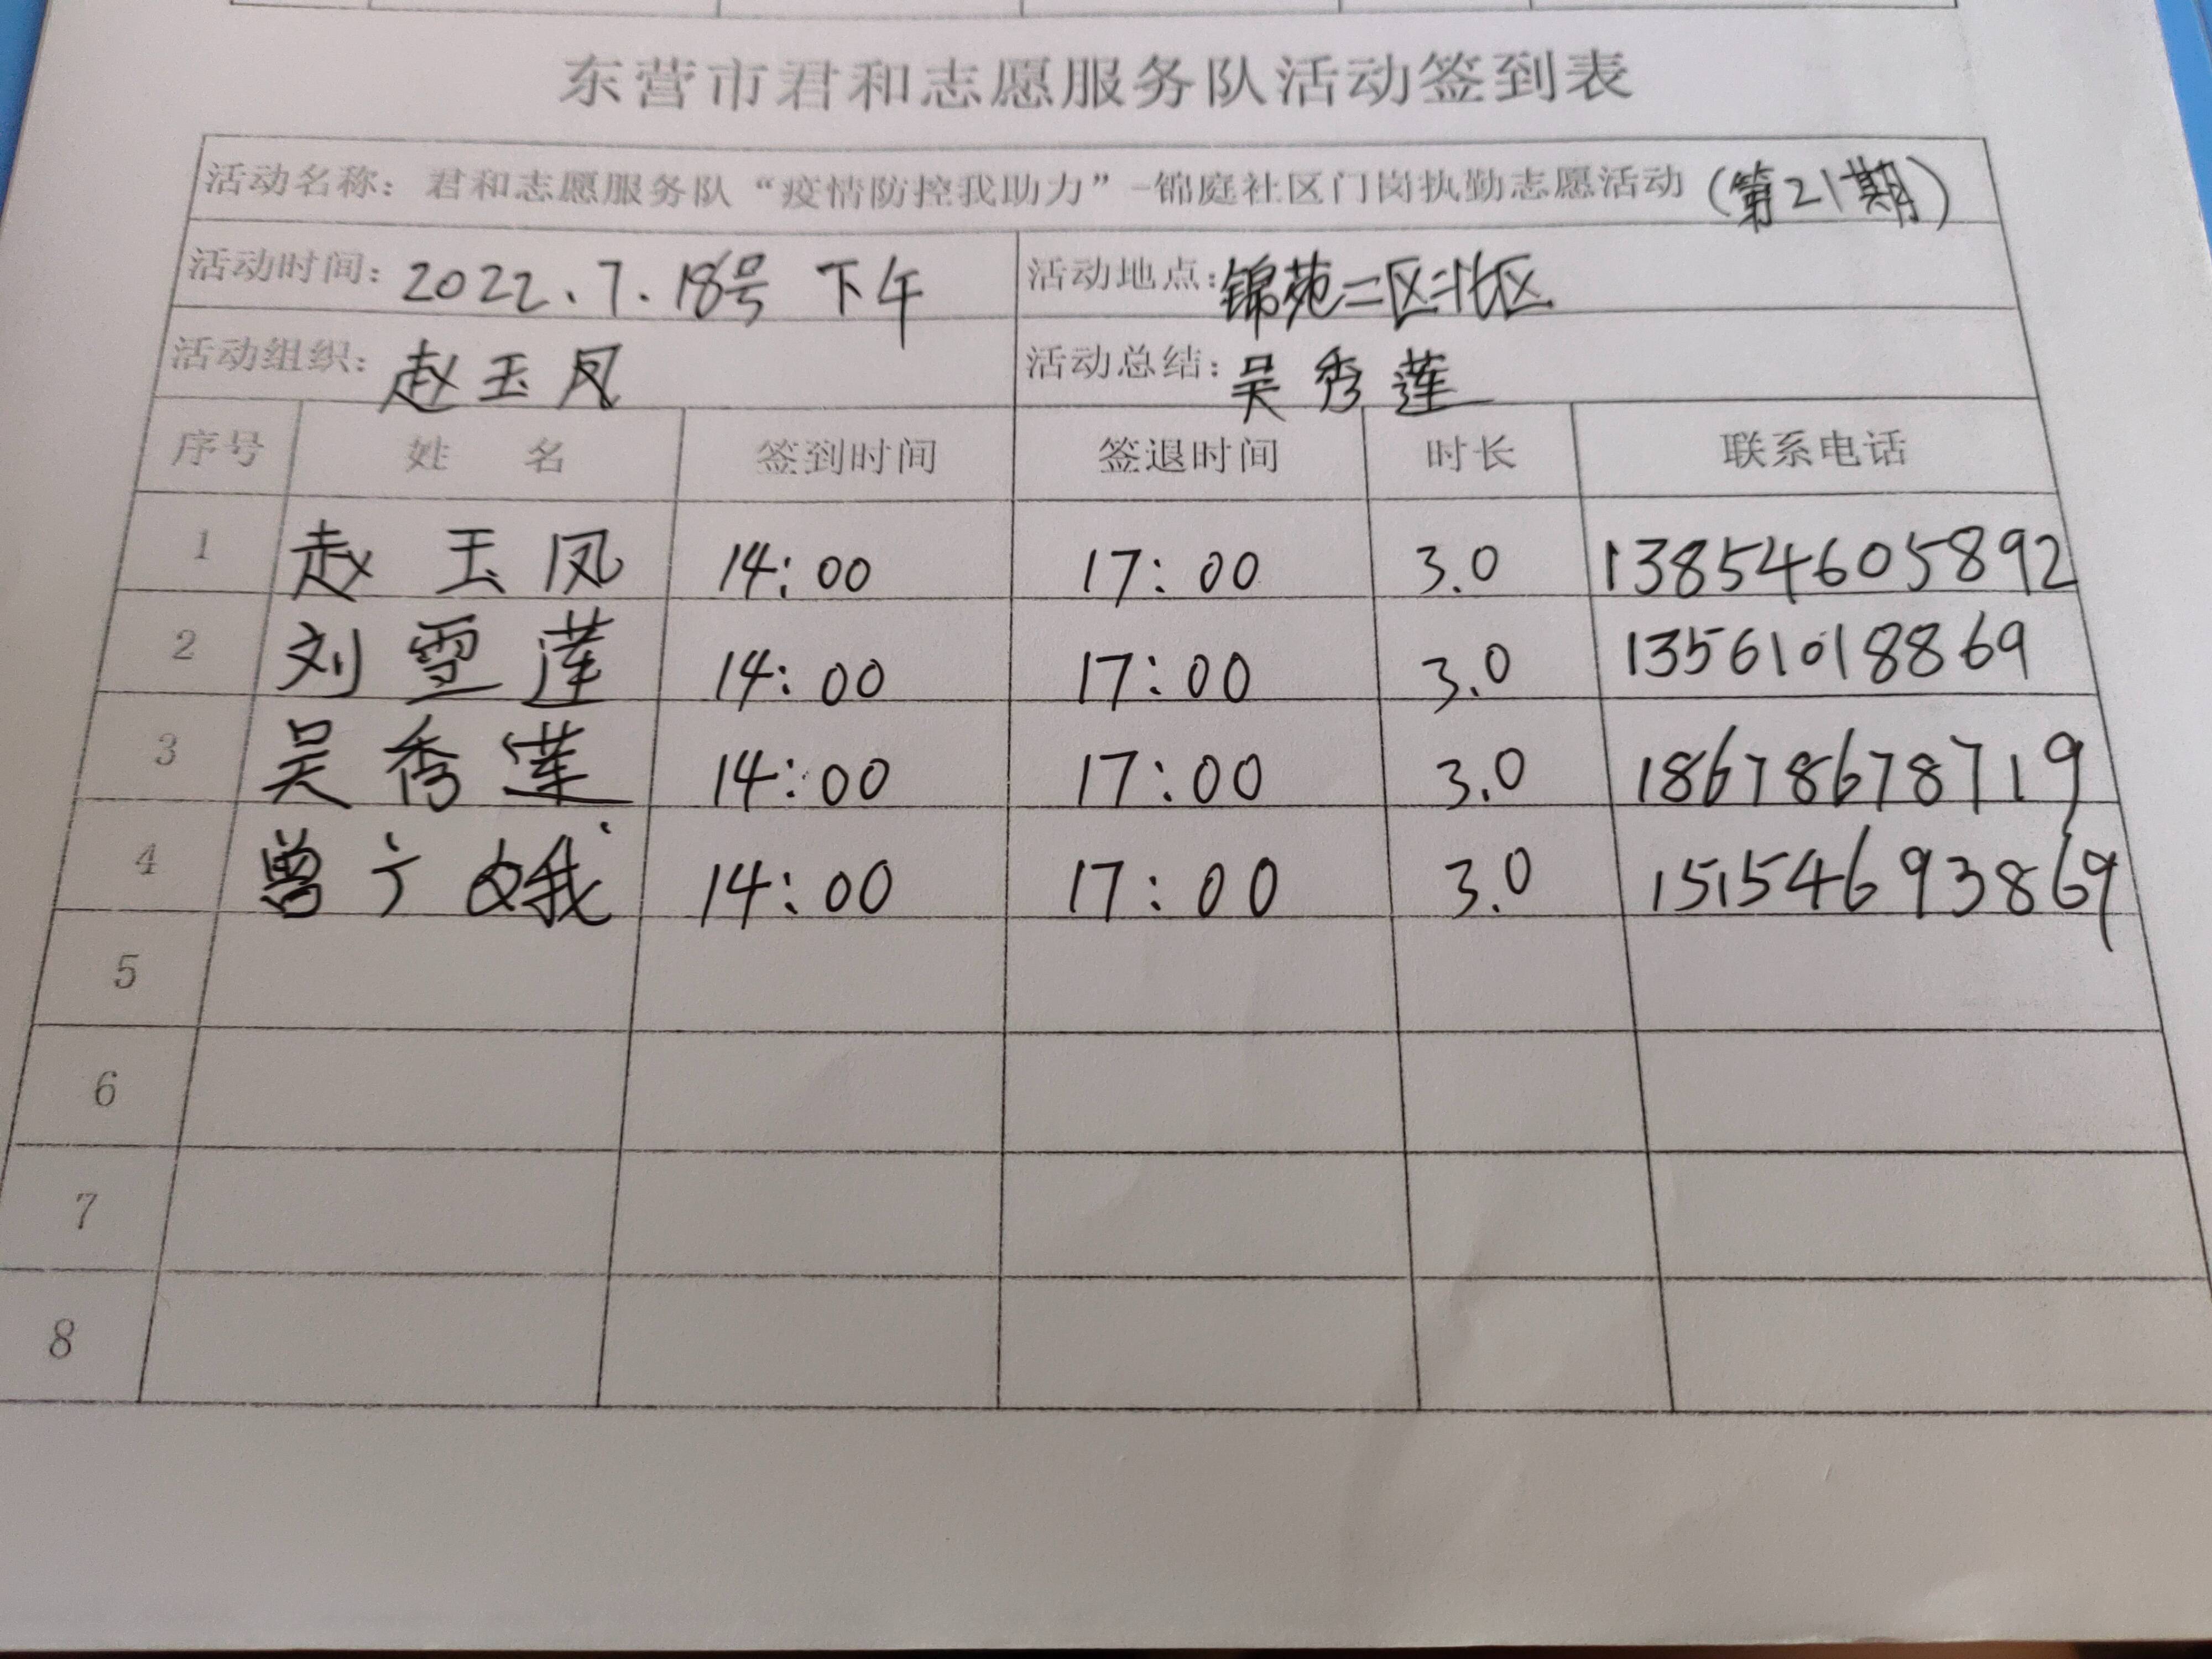 东营市君和志愿服务队活动签到表
活动名称：君和志愿服务队“疫情防控我助力”-锦庭社区门岗执勤志愿活动（第21期）
活动时间：2022.7.18号 下午 活动地点：锦苑二区北区
活动组织：赵玉凤 活动总结：吴秀莲
序号 姓 名 签到时间 签退时间 时长 联系电话
1 赵玉凤 14:00 17:00 3.0 13854605892
2 刘雪莲 14:00 17:00 3.0 13561018869
3 吴秀莲 14:00 17:00 3.0 18678678719
4 曾广娥 14:00 17:00 3.0 15154693869
5
6
7
8